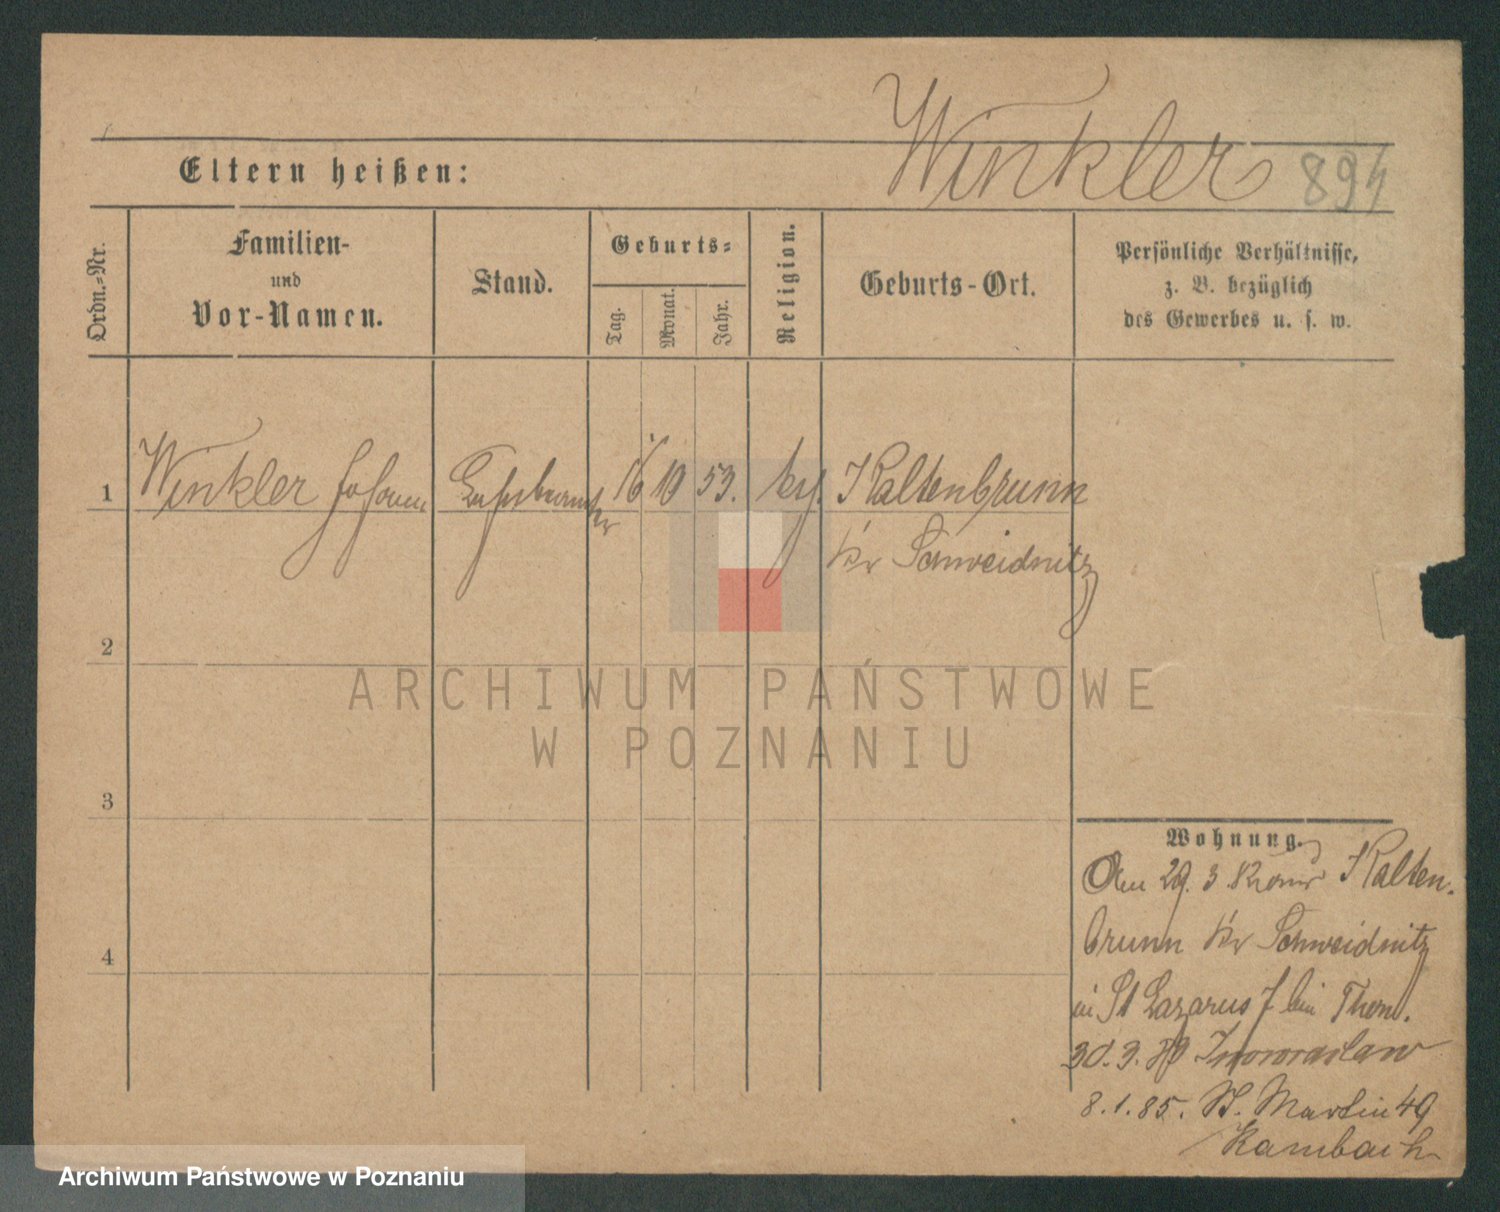 Winkler 894
Eltern heißen:
Ordn.-Nr.
Familien-
und
Vor-Namen.
Stand.
Geburts-
Tag.
Monat.
Jahr.
Religion.
Geburts-Ort.
Persönliche Verhältnisse,
z. B. bezüglich
des Gewerbes u. s. w.
1 Winkler Johann 16 10 53. Kaltenbrunn
Kr Schweidnitz
2
3
4
Wohnung.
Am 29. 3 Kalten-
brunn Kr Schweidnitz
in St Lazarus 7 bei Thom.
30. 3. Inowraslaw
8. 1. 85. St. Martin 49
Kambach
ARCHIWUM PAŃSTWOWE
W POZNANIU
Archiwum Państwowe w Poznaniu